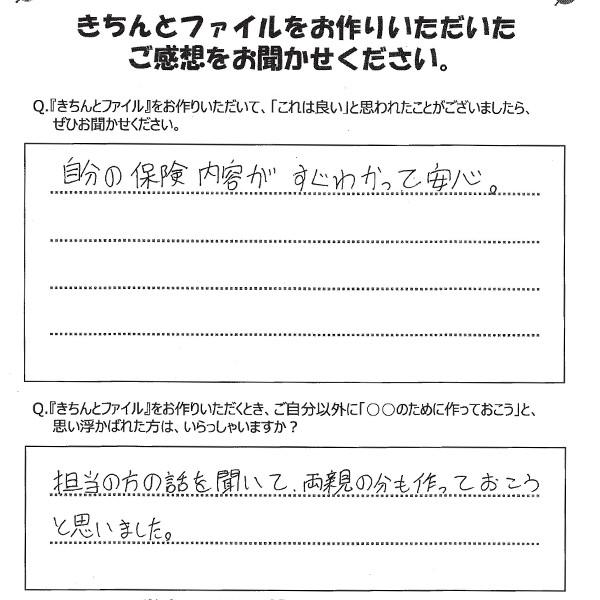 きちんとファイルをお作りいただいた
ご感想をお聞かせください。
Q.『きちんとファイル』をお作りいただいて、「これは良い」と思われたことがございましたら、
ぜひお聞かせください。
自分の保険内容がすぐわかって安心。
Q.『きちんとファイル』をお作りいただくとき、ご自分以外に「○○のために作っておこう」と、
思い浮かばれた方は、いらっしゃいますか？
担当の方の話を聞いて、両親の分も作っておこう
と思いました。